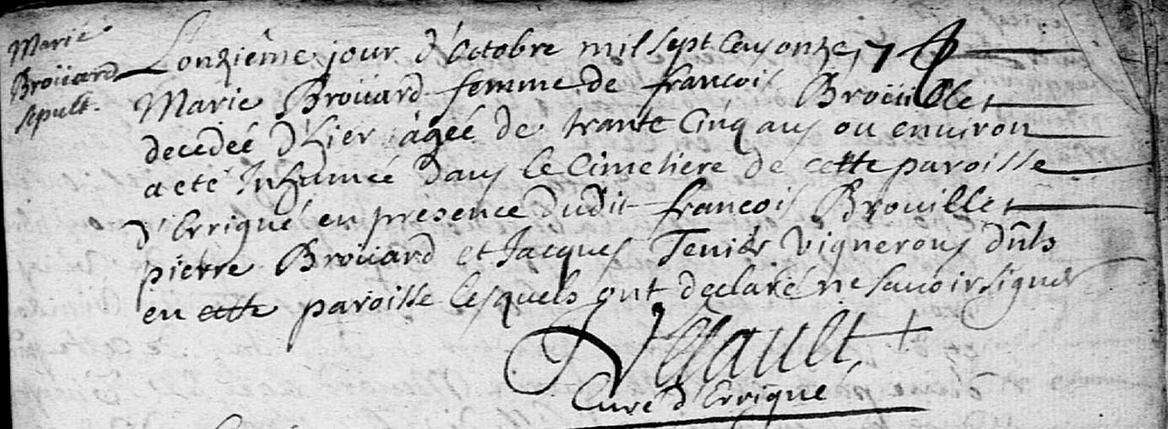 Marie
Broüard
sepult.
Lonziême jour d'octobre mil sept cens onze,
Marie Broüard femme de francois Broüillet
decedeé d'hier ágeé de trante cinq ans ou environ
a eté Inhumeé dans le Cimetiere de cette paroisse
d'Errigné en presence dudit francois Brouillet
pierre Broüard et Jacques Tenier vignerons dñts
en cette paroisse lesquels ont declaré ne savoir signer
Curé d'Errigne